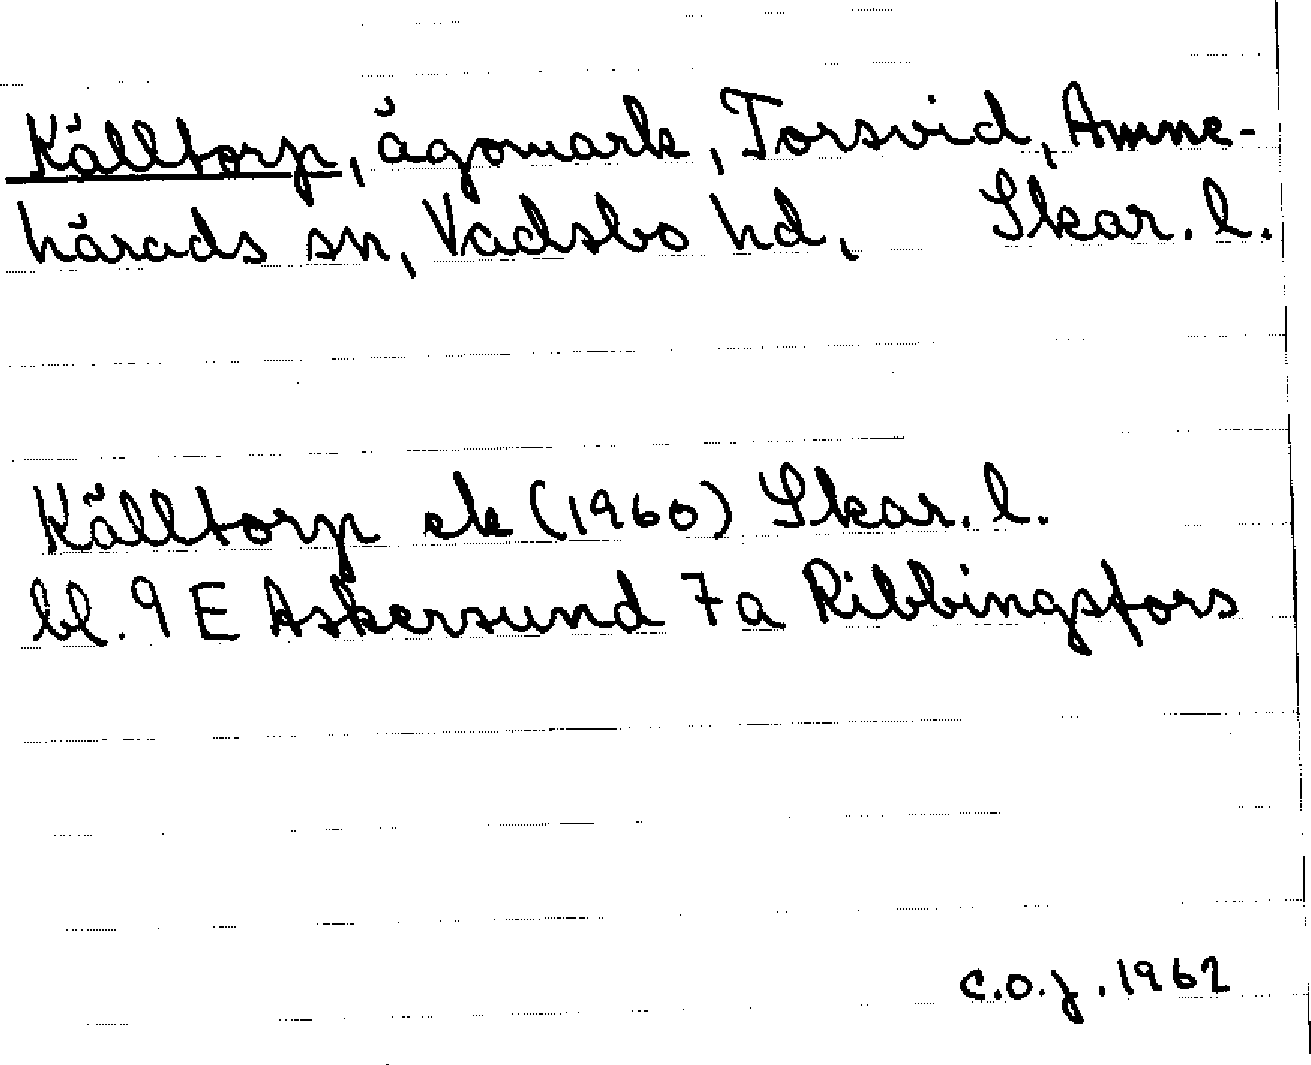 Källtorp, ägomark, Torsvid, Amne-
härads sn, Vadsbo hd, Skar. l.
Källtorp ek (1960) Skar. l.
bl. 9 E Askersund 7a Ribbingsfors
C.O.J. 1962